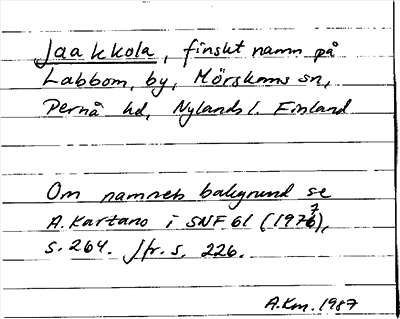 Jaakkola, finskt namn på
Labbom, by, Mörskoms sn,
Pernå hd, Nylands l. Finland
Om namnets bakgrund se
A. Kartano i SNF 61 (1977),
s. 264. Jfr. s. 226.
A.Km. 1987